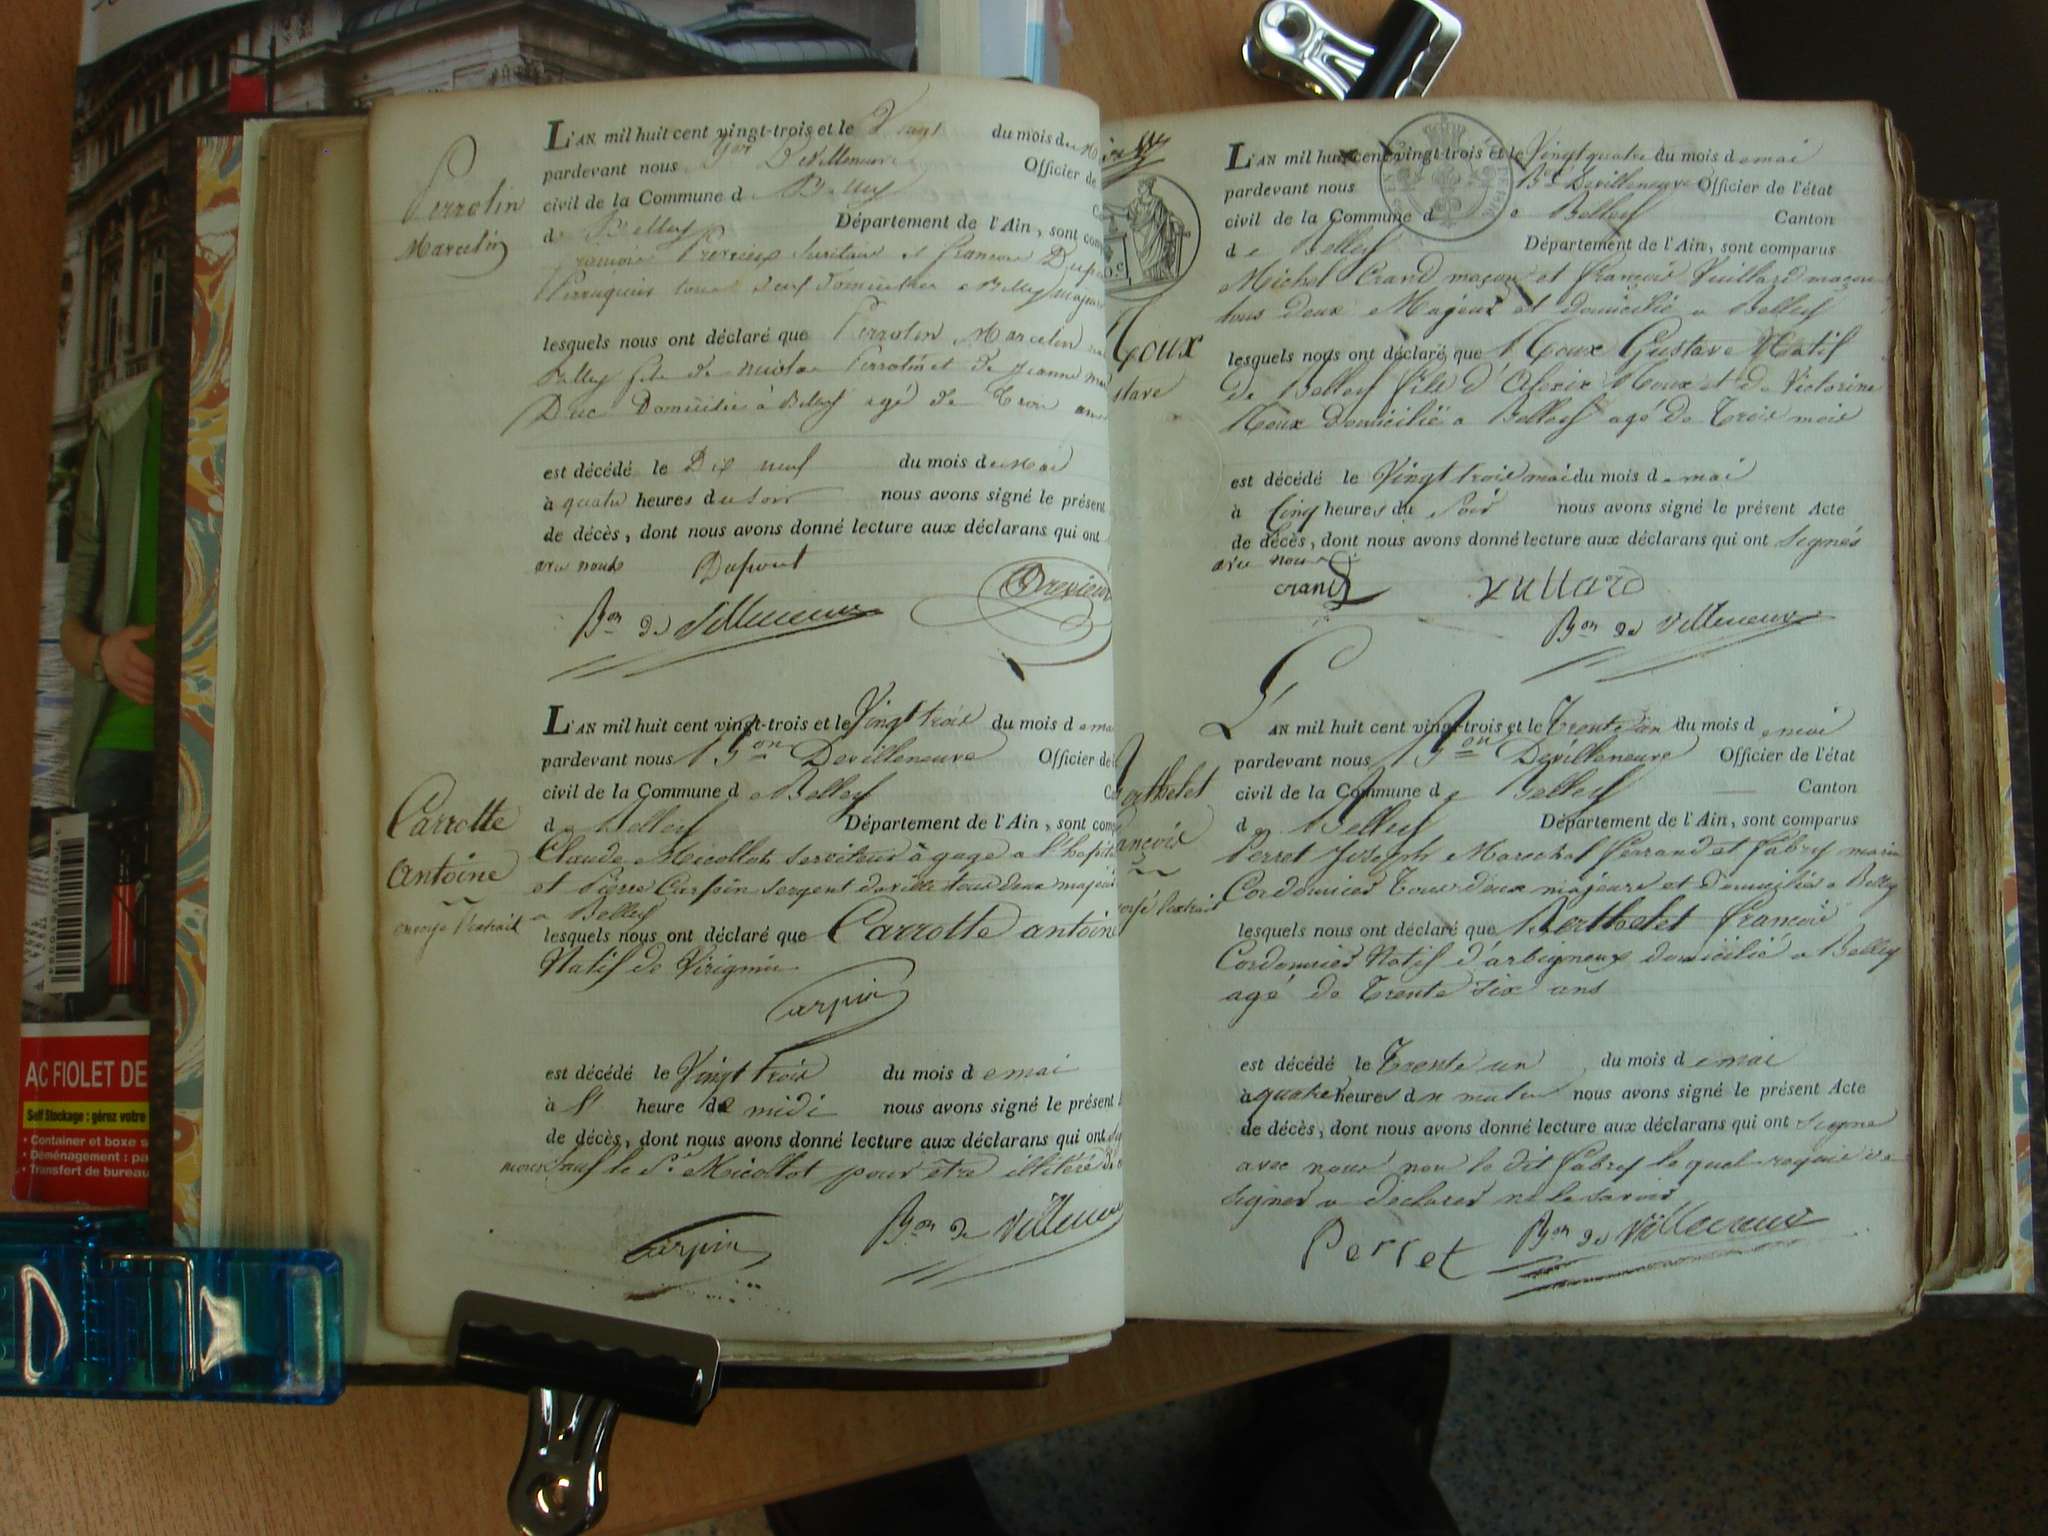 Perrotin
Marcelin
L'AN mil huit cent vingt-trois et le Vingt du mois de
pardevant nous Bon Devilleneuve Officier de
civil de la Commune d e Belley
d e Belley Département de l'Ain, sont
et francois
domicilies a Belley majeurs
lesquels nous ont déclaré que Perrotin Marcelin
Belley fils de nicolas Perrotin et de jeanne
Duc Domicilié à Belley agé de Trois
est décédé le Dix neuf du mois de Mai
à quatre heures du soir nous avons signé le présent
de décès, dont nous avons donné lecture aux déclarans qui ont
avec nous Dupont
Bon de Villeneuve
Carrotte
Antoine
L'AN mil huit cent vingt-trois et le Vingt trois du mois d e mai
pardevant nous Bon Devilleneuve Officier de
civil de la Commune d e Belley
d e Belley Département de l'Ain, sont
Claude Micollot serviteur à gage a l'hopital
et Pierre Carpin sergent tous deux majeurs
a Belley
lesquels nous ont déclaré que Carrotte antoine
Natif de Virignin
Carpin
est décédé le Vingt trois du mois d e mai
à heure de midi nous avons signé le présent
de décès, dont nous avons donné lecture aux déclarans qui ont
nous sauf le Sr Micollot pour être illitéré
Carpin Bon de Villeneuve
Roux
stave
L'AN mil huit cent vingt-trois et le Vingt quatre du mois d e mai
pardevant nous Bon Devilleneuve Officier de l'état
civil de la Commune d e Belley Canton
d e Belley Département de l'Ain, sont comparus
Michel Crand maçon et françois Vuillard maçon
tous deux Majeurs et domicilié a Belley
lesquels nous ont déclaré que Roux Gustave Natif
de Belley fils d'Alexix Roux et de Victorine
Roux domicilié a Belley agé de Trois mois
est décédé le Vingt trois mai du mois d e mai
à Cinq heures du Soir nous avons signé le présent Acte
de décès, dont nous avons donné lecture aux déclarans qui ont signés
avec nous
crand vullard
Bon de Villeneuve
erthelet
ancois
L'AN mil huit cent vingt-trois et le Trente un du mois d e mai
pardevant nous Bon Devilleneuve Officier de l'état
civil de la Commune d e Belley Canton
d e Belley Département de l'Ain, sont comparus
Perret Joseph Marechal ferrand et fabry marin
Cordonnier Tous deux majeurs et domiciliés a Belley
lesquels nous ont déclaré que Berthelet francois
Cordonnier Natif d'arbignieux domicilié a Belley
agé de Trente six ans
est décédé le Trente un du mois d e mai
à quatre heures du matin nous avons signé le présent Acte
de décès, dont nous avons donné lecture aux déclarans qui ont signe
avec nous non le dit fabry le quel requis de
signer a declarer ne le savoir
Perret Bon de Villeneuve
AC FIOLET DE
Self Stockage : gérez votre
• Container et boxe s
• Déménagement : pa
• Transfert de bureau